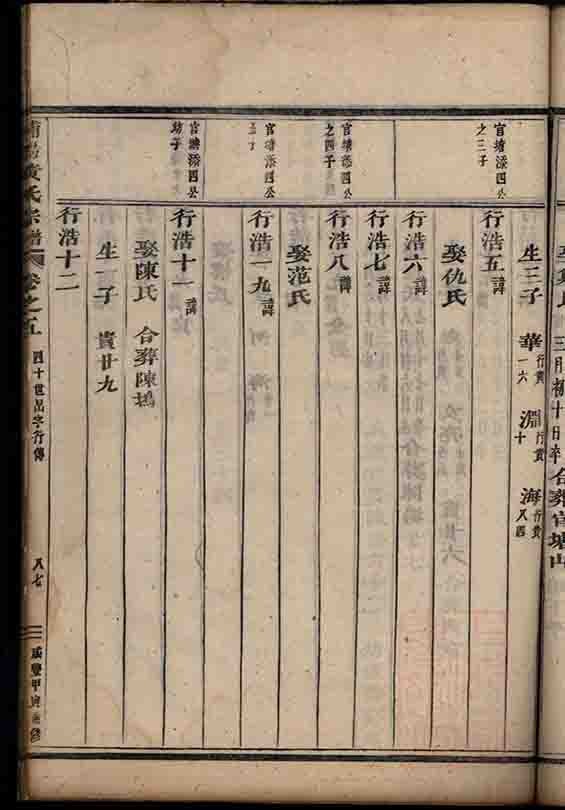 三月初十日卒合葬官塘山
生三子 華行貴一六 淵行貴十 海行貴八四
官塘添四公之三子
行浩五諱
娶仇氏
行浩六諱
行浩七諱
官塘添四公之四子
行浩八諱
娶范氏
官塘添四公
行浩一九諱
官塘添四公幼子
行浩十一諱
娶陳氏 合葬陳塢
生一子 貴廿九
行浩十二
黃氏宗譜 卷之五 四十世浩字行傳 八七 咸豐甲寅重修